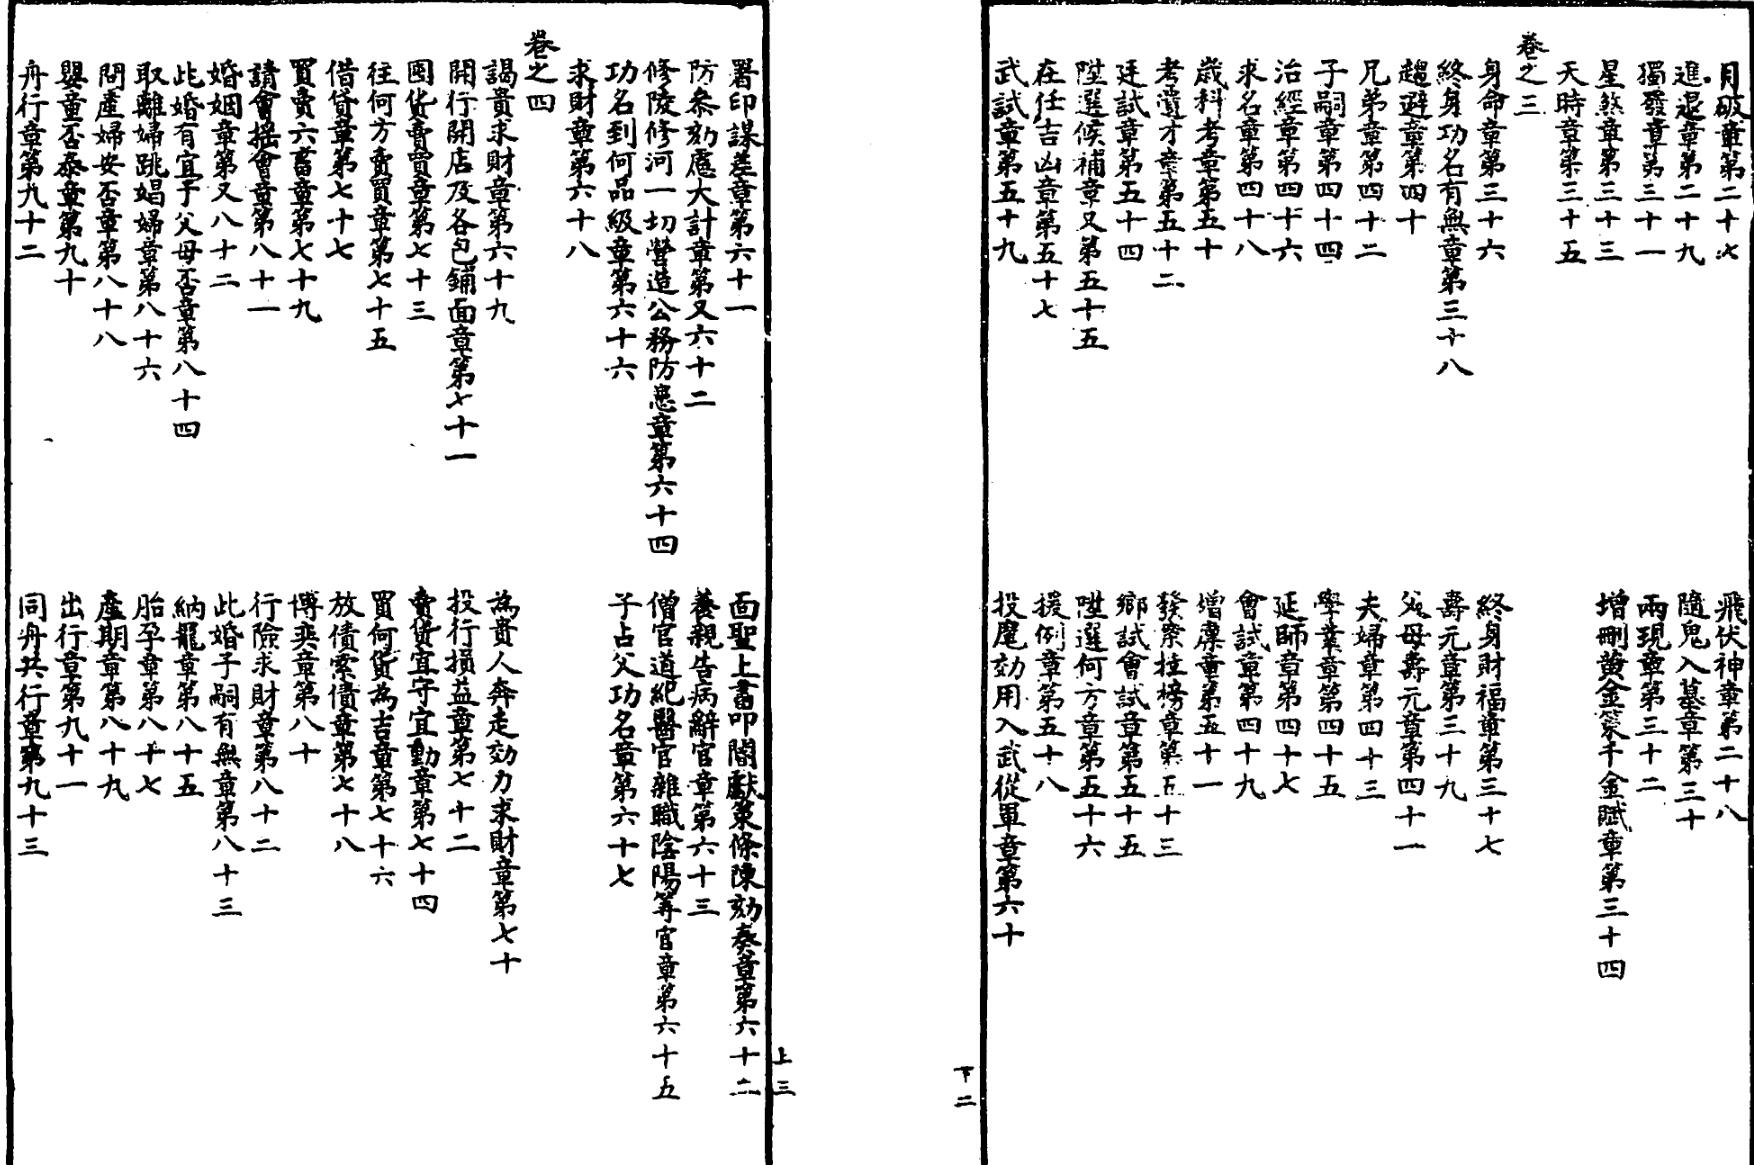 月破章第二十七
飛伏神章第二十八
進退章第二十九
隨鬼入墓章第三十
獨發章第三十一
兩現章第三十二
星煞章第三十三
增刪黃金策千金賦章第三十四
天時章第三十五
卷之三
身命章第三十六
終身財福章第三十七
終身功名有無章第三十八
壽元章第三十九
趨避章第四十
父母壽元章第四十一
兄弟章第四十二
夫婦章第四十三
子嗣章第四十四
學業章第四十五
治經章第四十六
延師章第四十七
求名章第四十八
會試章第四十九
歲科考章第五十
增廩章第五十一
考遺才章第五十二
發案挂榜章第五十三
廷試章第五十四
鄉試會試章第五十五
陞選候補章又第五十五
陞選何方章第五十六
在任吉凶章第五十七
援例章第五十八
武試章第五十九
投麾効用入武從軍章第六十
下二
上三
署印謀差章第六十一
面聖上書叩閽獻策條陳劾奏章第六十二
防參劾慮大計章第又六十二
養親告病辭官章第六十三
修陵修河一切營造公務防患章第六十四
僧官道紀醫官雜職陰陽等官章第六十五
功名到何品級章第六十六
子占父功名章第六十七
求財章第六十八
卷之四
謁貴求財章第六十九
為貴人奔走効力求財章第七十
開行開店及各色鋪面章第七十一
投行損益章第七十二
囤貨賣買章第七十三
賣貨宜守宜動章第七十四
往何方賣買章第七十五
買何貨為吉章第七十六
借貸章第七十七
放債索債章第七十八
買賣六畜章第七十九
博奕章第八十
請會搖會章第八十一
行險求財章第八十二
婚姻章第又八十二
此婚子嗣有無章第八十三
此婚有宜于父母否章第八十四
納寵章第八十五
取離婦跳娼婦章第八十六
胎孕章第八十七
問產婦安否章第八十八
產期章第八十九
嬰童否泰章第九十
出行章第九十一
舟行章第九十二
同舟共行章第九十三